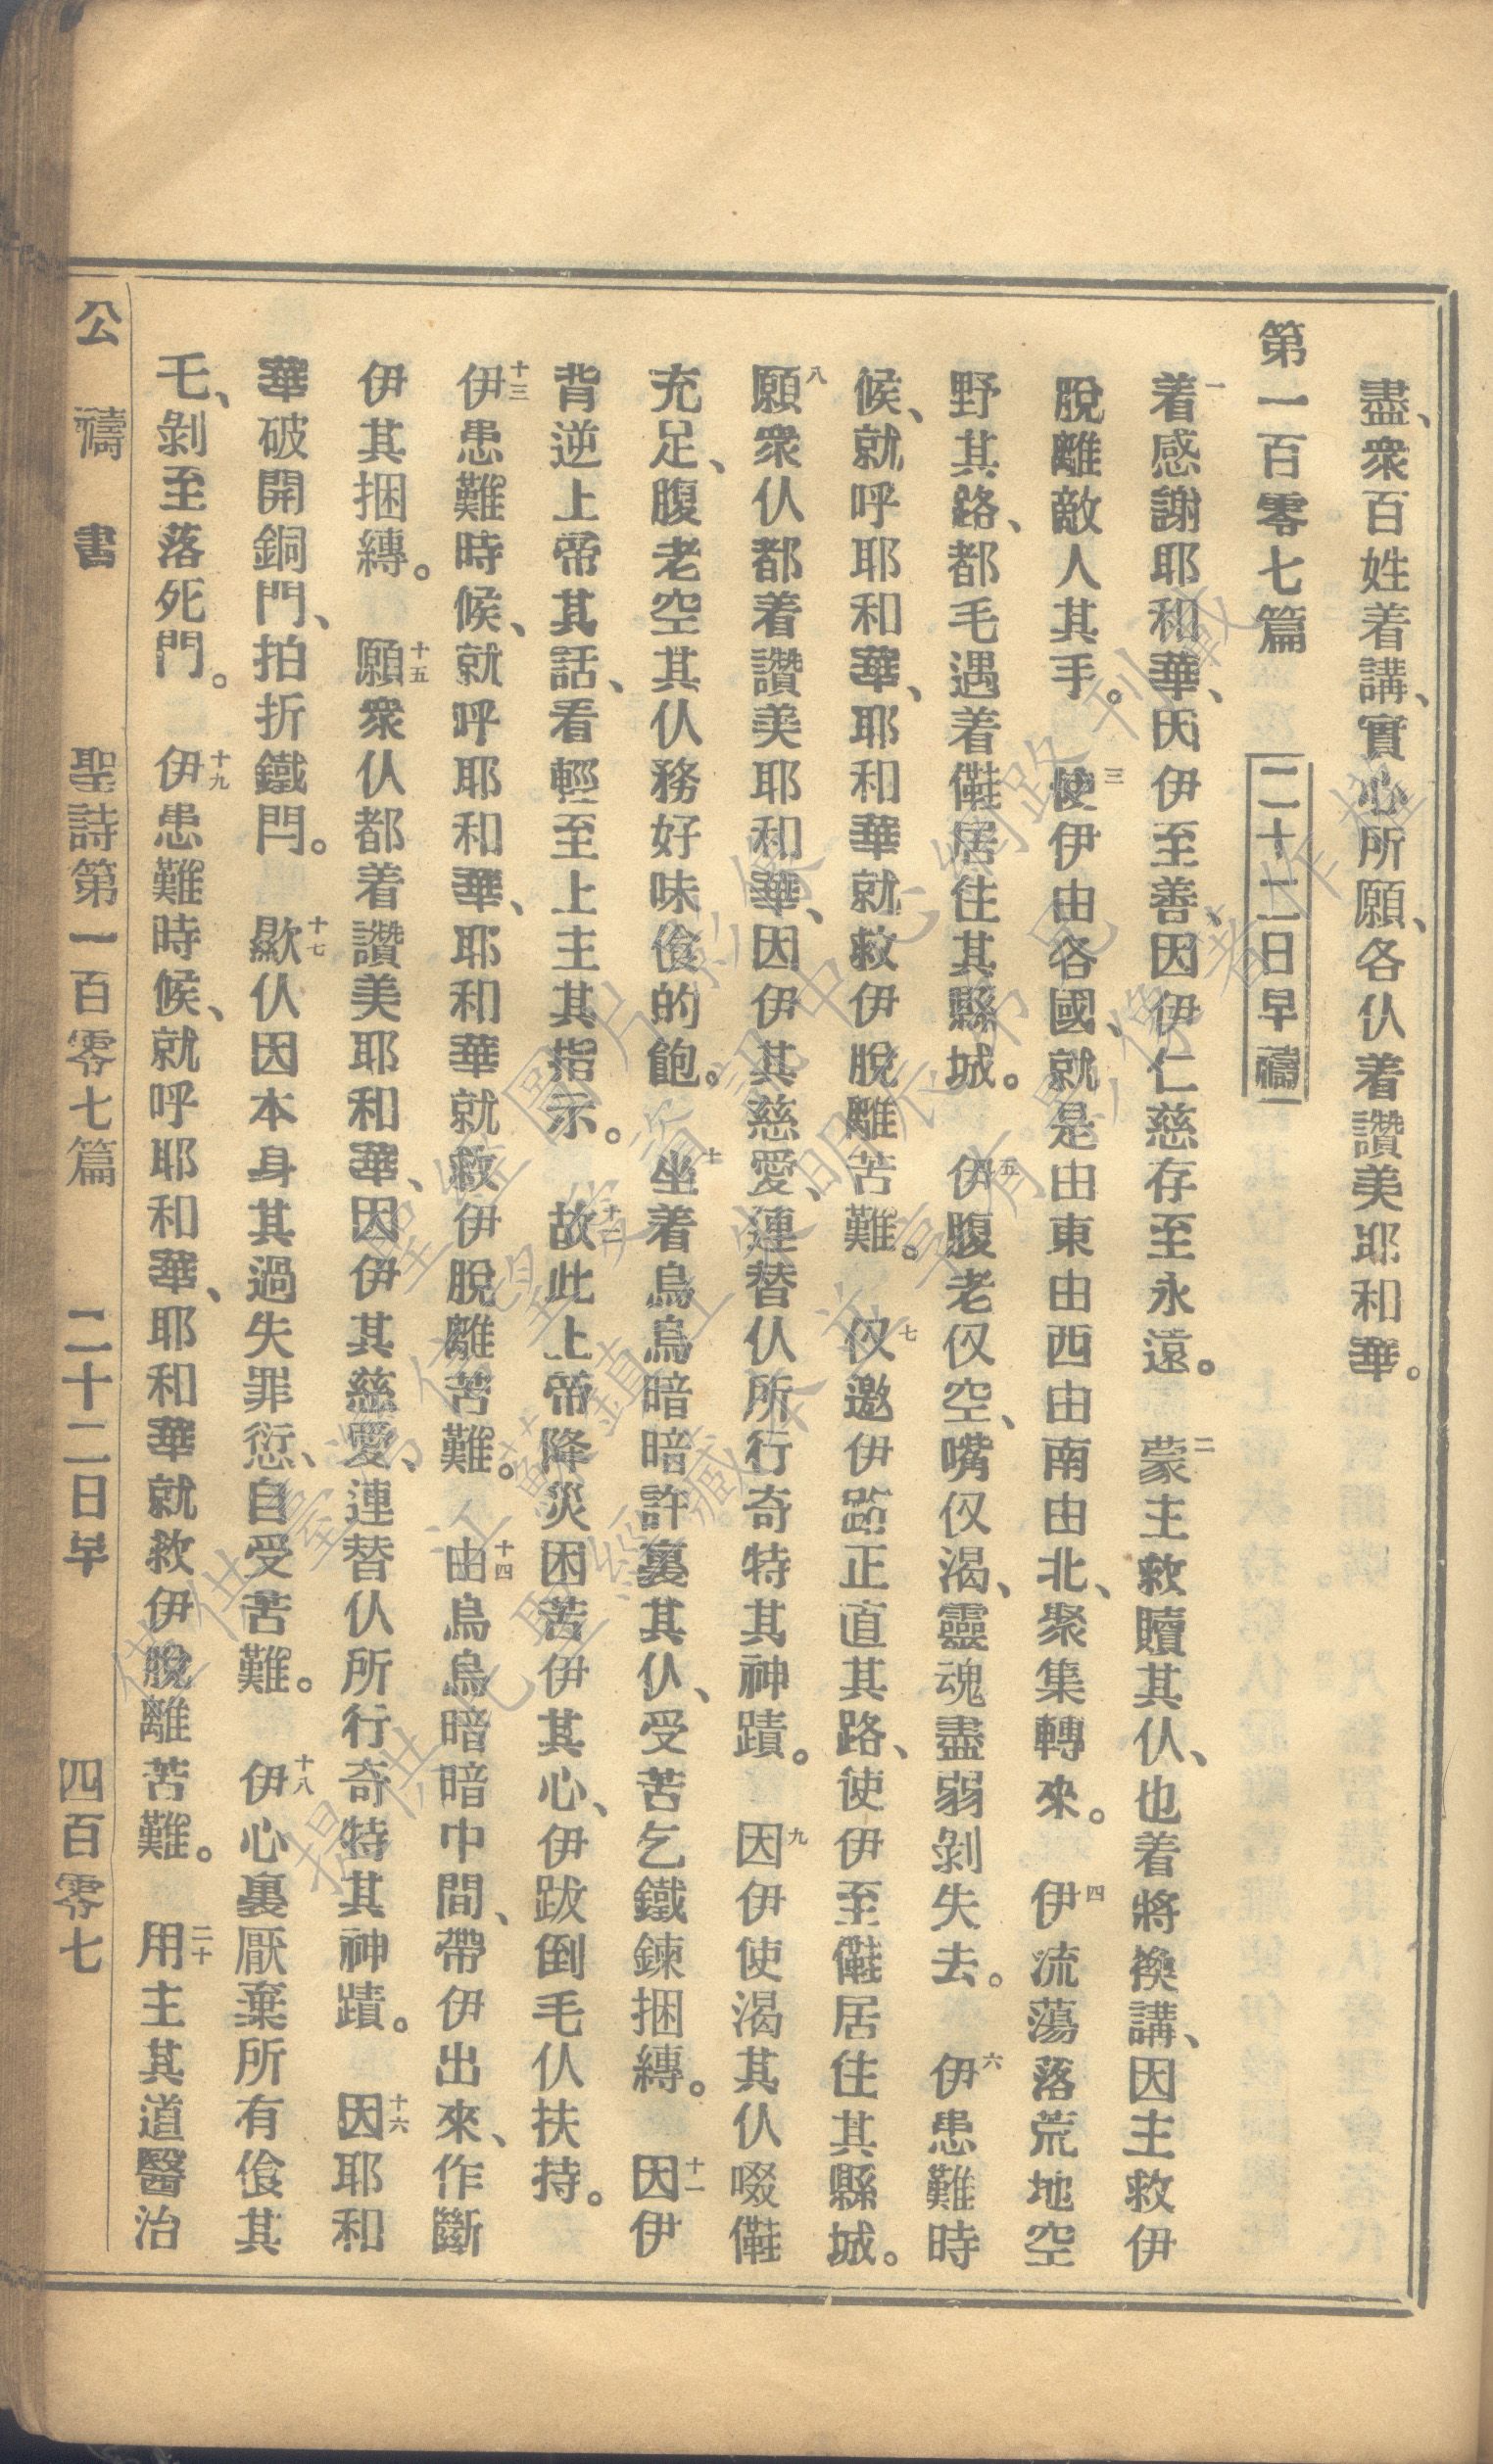 盡、衆百姓着講、實心所願、各伙着讚美耶和華。
第一百零七篇 二十二日早禱
一着感謝耶和華、因伊至善、因伊仁慈存至永遠。二蒙主救贖其伙、也着將換講、因主救伊
脫離敵人其手。三使伊由各國、就是由東由西由南由北、聚集轉來。四伊流蕩落荒地空
野其路、都毛遇着儺居住其縣城。五伊腹老仅空、嘴仅渴、靈魂盡弱剝失去。六伊患難時
候、就呼耶和華、耶和華就救伊脫離苦難。七仅邀伊跲正直其路、使伊至儺居住其縣城。
八願衆伙都着讚美耶和華、因伊其慈愛、連替伙所行奇特其神蹟。九因伊使渴其伙啜儺
充足、腹老空其伙務好味飡的飽。十坐着烏烏暗暗許裏其伙、受苦乞鐵鍊捆縛。十一因伊
背逆上帝其話、看輕至上主其指示。十二故此上帝降災困苦伊其心、伊跋倒毛伙扶持。
十三伊患難時候、就呼耶和華、耶和華就救伊脫離苦難。十四由烏烏暗暗中間、帶伊出來、作斷
伊其捆縛。十五願衆伙都着讚美耶和華、因伊其慈愛、連替伙所行奇特其神蹟。十六因耶和
華破開銅門、拍折鐵閂。十七歞伙因本身其過失罪愆、自受苦難。十八伊心裏厭棄所有飡其
毛、剝至落死門。十九伊患難時候、就呼耶和華、耶和華就救伊脫離苦難。二十用主其道醫治
公禱書 聖詩第一百零七篇 二十二日早 四百零七